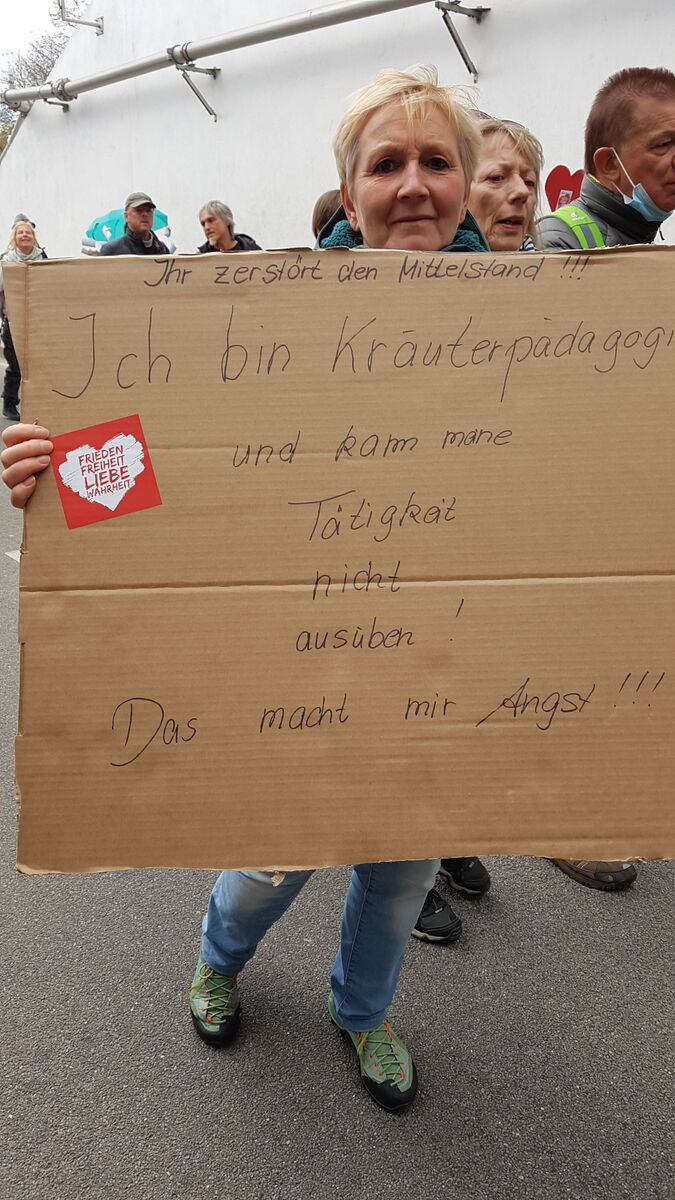 Ihr zerstört den Mittelstand !!!
Ich bin Kräuterpädagogi
und kam mane
Tätigkeit
nicht
ausüben !
Das macht mir Angst !!!
FRIEDEN
FREIHEIT
LIEBE
WAHRHEIT